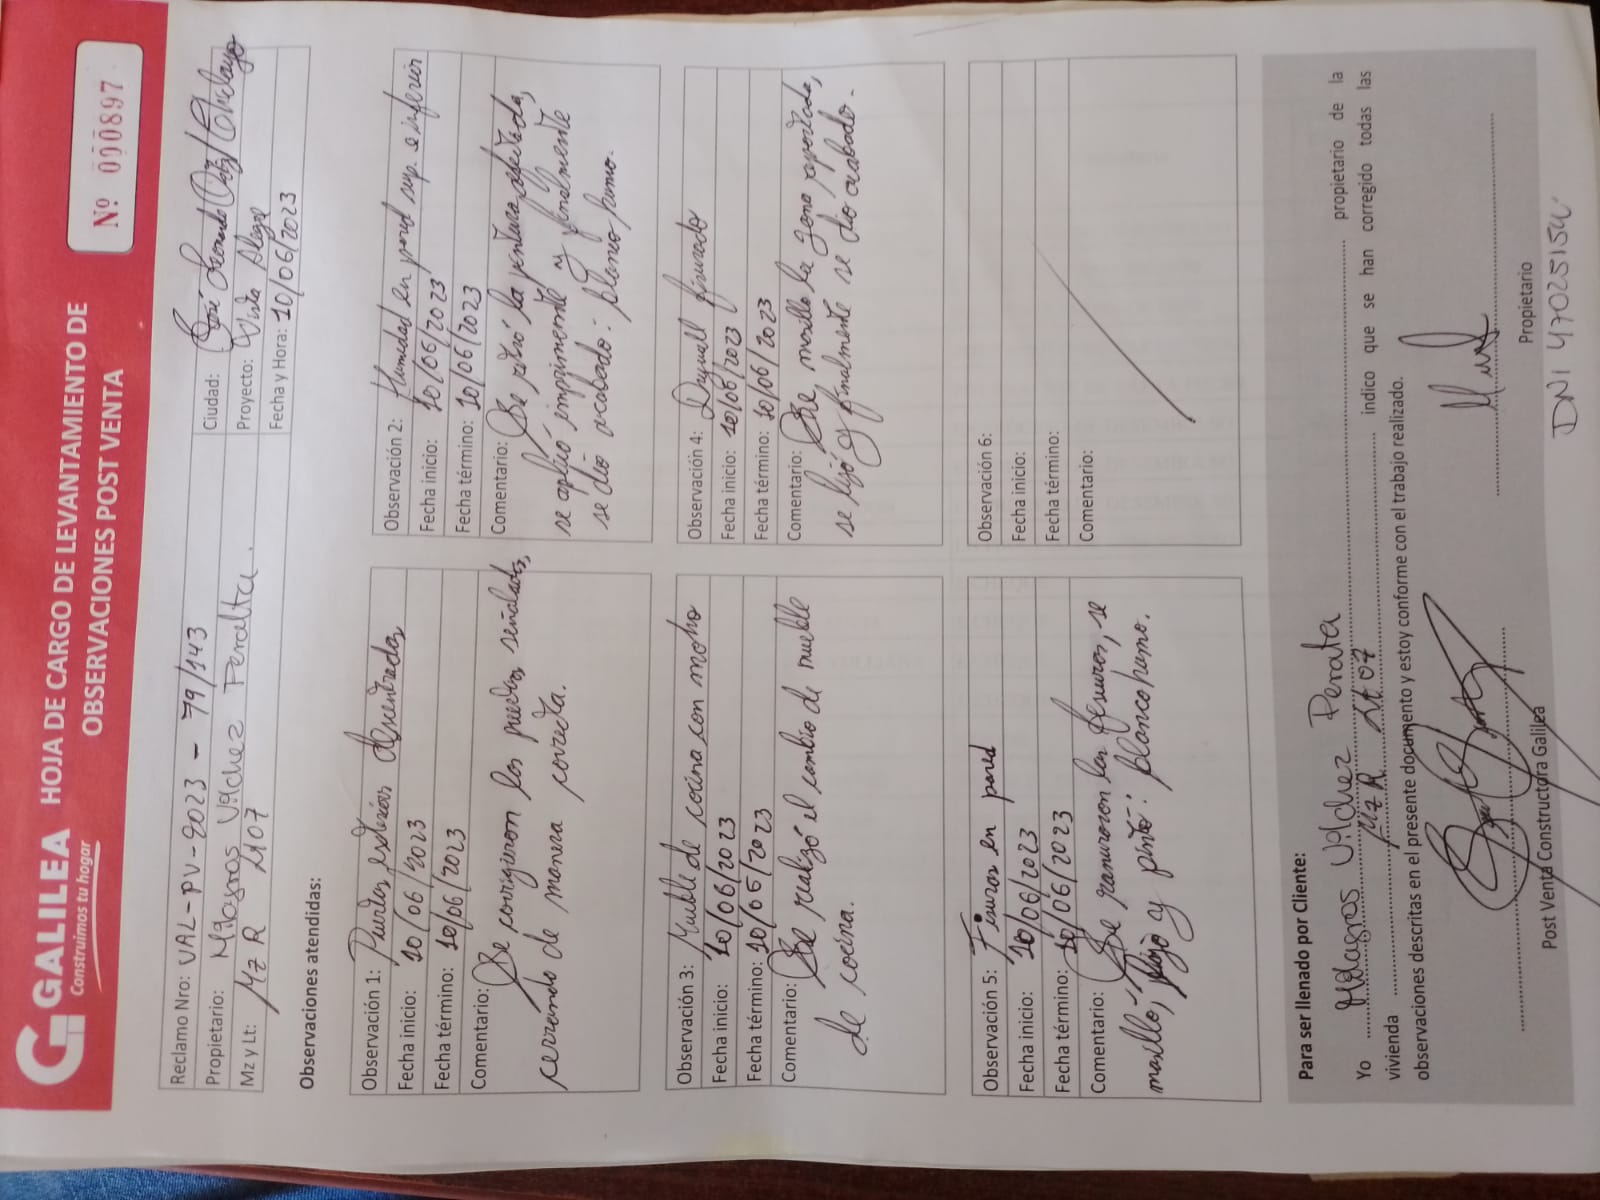 GALILEA
Construimos tu hogar
HOJA DE CARGO DE LEVANTAMIENTO DE
OBSERVACIONES POST VENTA
Nº 000897
Reclamo Nro: VAL-PV-2023 - 79/143
Ciudad: José Leonardo Ortiz/Chiclayo
Propietario: Milagros Vilchez Peralta.
Proyecto: Vista Alegre
Mz y Lt: Mz R Lt07
Fecha y Hora: 10/06/2023
Observaciones atendidas:
Observación 1: Puertas exterior descentradas
Fecha inicio: 10/06/2023
Fecha término: 10/06/2023
Comentario: Se corrigieron las puertas señaladas,
cerrando de manera correcta.
Observación 2: Humedad en pared sup. e inferior
Fecha inicio: 10/06/2023
Fecha término: 10/06/2023
Comentario: Se retiró la pintura afectada,
se aplicó imprimante y finalmente
se dio acabado: blanco humo.
Observación 3: Mueble de cocina con moho
Fecha inicio: 10/06/2023
Fecha término: 10/06/2023
Comentario: Se realizó el cambio de mueble
de cocina.
Observación 4: Drywall fisurado
Fecha inicio: 10/06/2023
Fecha término: 10/06/2023
Comentario: Se masillo la zona
se lijó y finalmente se dio acabado.
Observación 5: Fisuras en pared
Fecha inicio: 10/06/2023
Fecha término: 10/06/2023
Comentario: Se ranuraron las fisuras, se
masilló, lijó y pintó: blanco humo.
Observación 6:
Fecha inicio:
Fecha término:
Comentario:
Para ser llenado por Cliente:
Yo Milagros Vilchez Perata propietario de la
vivienda Mz R Lt 07 indico que se han corregido todas las
observaciones descritas en el presente documento y estoy conforme con el trabajo realizado.
Post Venta Constructora Galilea
Propietario
DNI